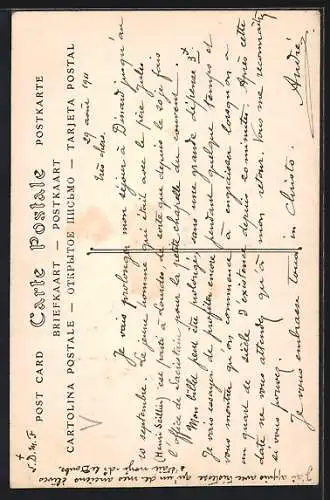 POST CARD Carte Postale POSTKARTE
BRIEFKAART — POSTKAART
CARTOLINA POSTALE — ОТКРЫТОЕ ПИСЬМО — TARJETA POSTAL
29 août 1911
Très chers,
Je vais prolonger mon séjour à Dinard jusqu'au
10 septembre. Le jeune homme qui était avec le père Jules
est parti à Lourdes, de sorte que depuis le 20 je fais
l'office de Sacristain pour la petite chapelle du couvent.
Mon billet peut être prolongé, sans une grande dépense
Je vais essayer de profiter encore pendant quelque temps et
vous montrer qu'on commence à engraisser lorsqu'on a
un quart de siècle d'existence depuis 20 minutes. Après cette
date ne vous attendez qu'à mon retour. Vous me reconnaîtrez
si vous pouvez.
Je vous embrasse tous in Christo.
André
J'ai après une
qu'un de mes anciens élèves